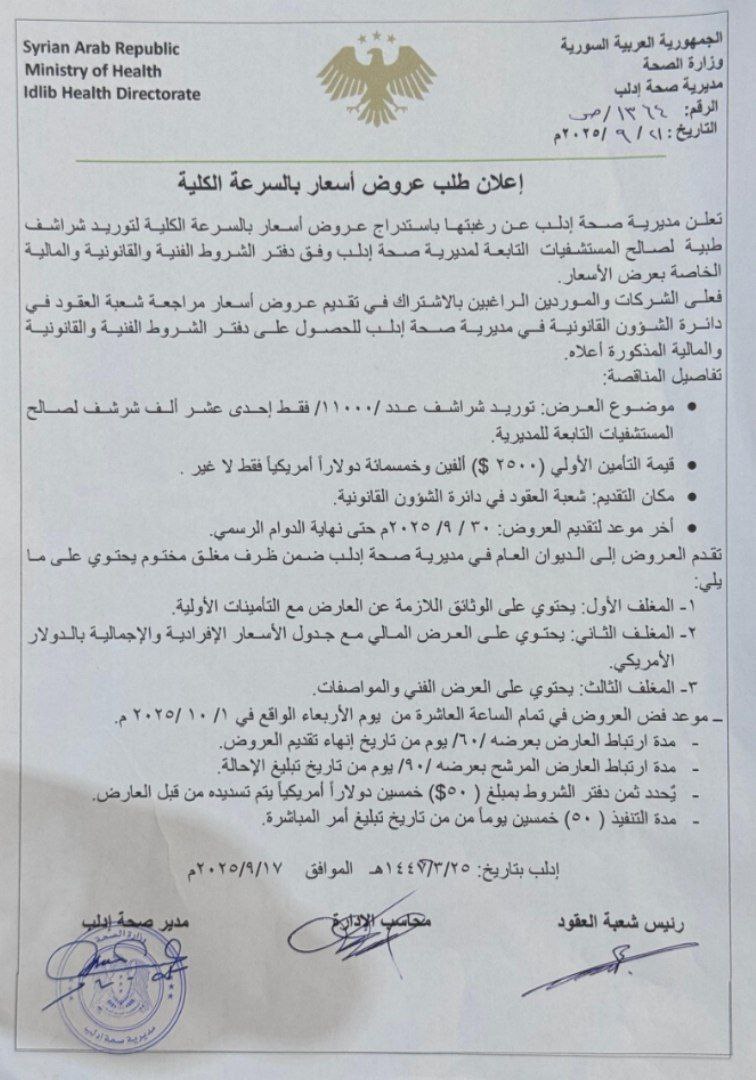 Syrian Arab Republic
Ministry of Health
Idlib Health Directorate
الجمهورية العربية السورية
وزارة الصحة
مديرية صحة إدلب
الرقم: ١٣٦٤ /ص
التاريخ: ٢١ / ٩ /٢٠٢٥م
إعلان طلب عروض أسعار بالسرعة الكلية
تعلن مديرية صحة إدلب عن رغبتها باستدراج عروض أسعار بالسرعة الكلية لتوريد شراشف
طبية لصالح المستشفيات التابعة لمديرية صحة إدلب وفق دفتر الشروط الفنية والقانونية والمالية
الخاصة بعرض الأسعار.
فعلى الشركات والموردين الراغبين بالاشتراك في تقديم عروض أسعار مراجعة شعبة العقود في
دائرة الشؤون القانونية في مديرية صحة إدلب للحصول على دفتر الشروط الفنية والقانونية
والمالية المذكورة أعلاه.
تفاصيل المناقصة:
• موضوع العرض: توريد شراشف عدد /١١٠٠٠/ فقط إحدى عشر ألف شرشف لصالح
المستشفيات التابعة للمديرية.
• قيمة التأمين الأولي (٢٥٠٠ $) ألفين وخمسمائة دولاراً أمريكياً فقط لا غير .
• مكان التقديم: شعبة العقود في دائرة الشؤون القانونية.
• أخر موعد لتقديم العروض: ٣٠ / ٩ /٢٠٢٥م حتى نهاية الدوام الرسمي.
تقدم العروض إلى الديوان العام في مديرية صحة إدلب ضمن ظرف مغلق مختوم يحتوي على ما
يلي:
١- المغلف الأول: يحتوي على الوثائق اللازمة عن العارض مع التأمينات الأولية.
٢- المغلف الثاني: يحتوي على العرض المالي مع جدول الأسعار الإفرادية والإجمالية بالدولار
الأمريكي.
٣- المغلف الثالث: يحتوي على العرض الفني والمواصفات.
_ موعد فض العروض في تمام الساعة العاشرة من يوم الأربعاء الواقع في ١/ ١٠ /٢٠٢٥ م.
- مدة ارتباط العارض بعرضه /٦٠/ يوم من تاريخ إنهاء تقديم العروض.
- مدة ارتباط العارض المرشح بعرضه /٩٠/ يوم من تاريخ تبليغ الإحالة.
- يُحدد ثمن دفتر الشروط بمبلغ ( ٥٠$) خمسين دولاراً أمريكياً يتم تسديده من قبل العارض.
- مدة التنفيذ ( ٥٠) خمسين يوماً من من تاريخ تبليغ أمر المباشرة.
إدلب بتاريخ: ١٤٤٧/٣/٢٥هـ الموافق ٢٠٢٥/٩/١٧م
رئيس شعبة العقود
محاسب الإدارة
مدير صحة إدلب
وزارة الصحة
مديرية صحة إدلب